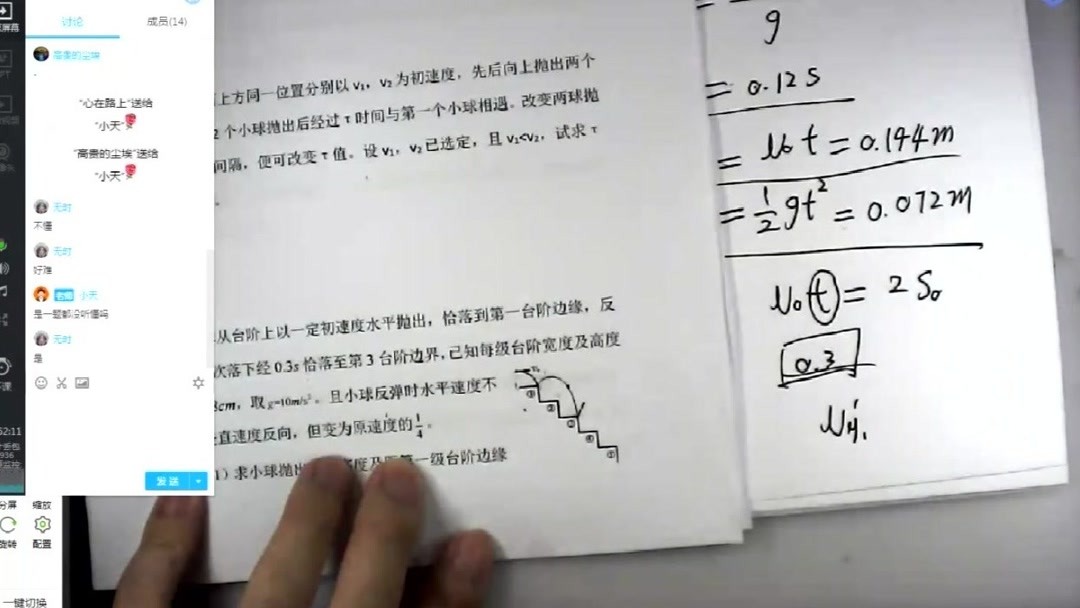 讨论
成员(14)
高贵的尘埃
"心在路上"送给
"小天"
"高贵的尘埃"送给
"小天"
无时
不懂
无时
好难
老师 小天
是一题都没听懂吗
无时
是
发送
缩放
配置
一键切换
上方同一位置分别以 v₁，v₂ 为初速度，先后向上抛出两个
2 个小球抛出后经过 τ 时间与第一个小球相遇。改变两球抛
间隔，便可改变 τ 值。设 v₁，v₂ 已选定，且 v₁<v₂，试求 τ
从台阶上以一定初速度水平抛出，恰落到第一台阶边缘，反
次落下经 0.3s 恰落至第 3 台阶边界，已知每级台阶宽度及高度
8cm，取 g=10m/s²。且小球反弹时水平速度不
直速度反向，但变为原速度的 1/4。
1）求小球抛出
度及
第一级台阶边缘
① ② ③ ④ ⑤
g
= 0.12s
= v₀t = 0.144m
= 1/2 gt² = 0.072m
v₀t = 2S₀
0.3